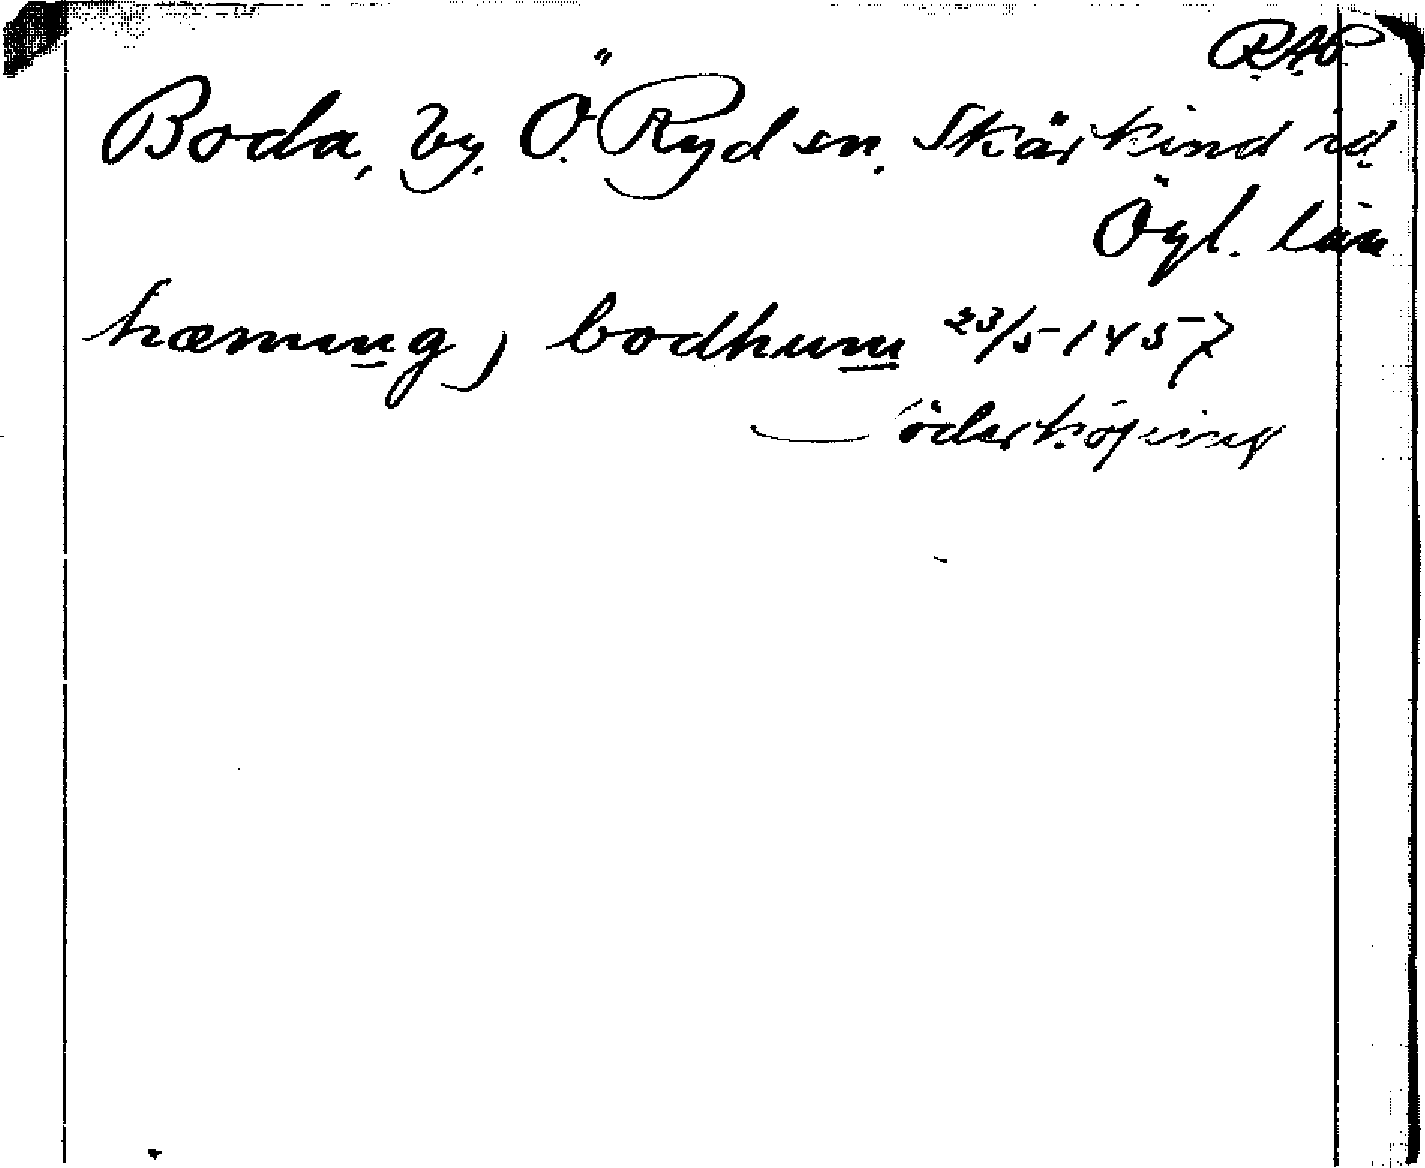 RAP
Boda, by. Ö. Ryd sn. Skärkind hd.
Ögl. län
hæmmng j bodhum 23/5 1457
Söderköping